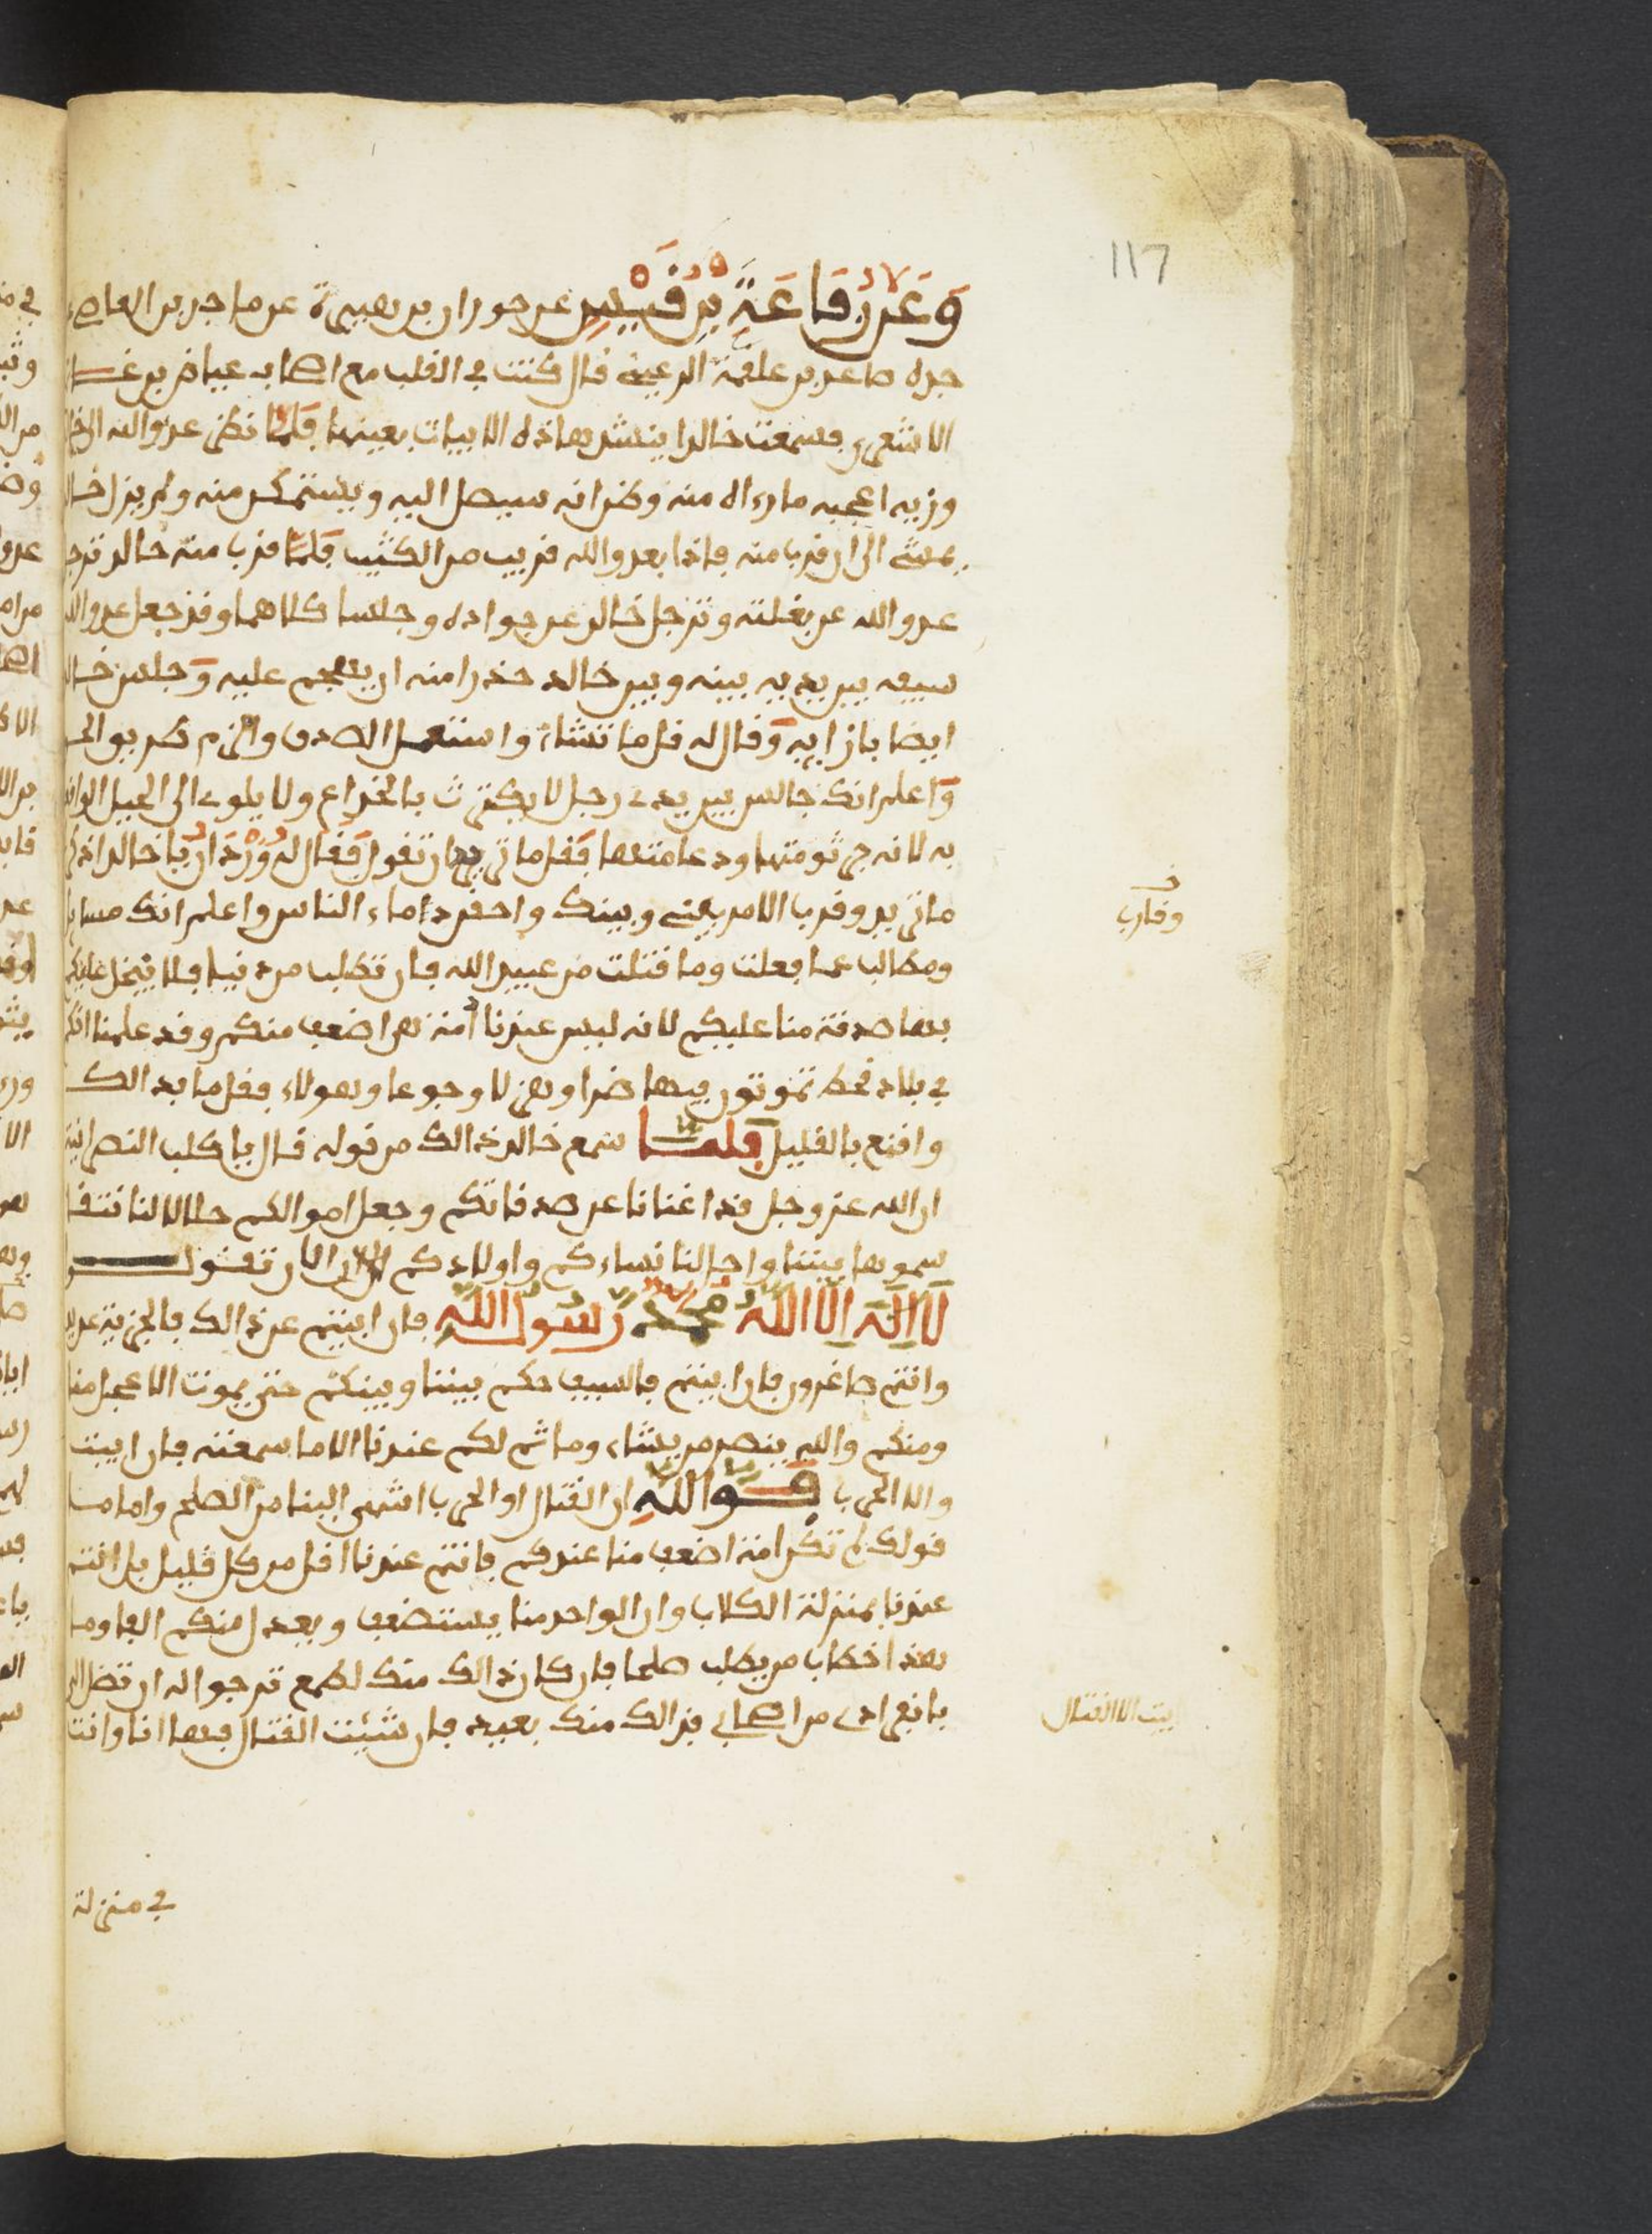 117
وَعَن رِفَاعَةَ بن قيس عن حوران بن هبيرة عن ماجد بن العاص
جده صاعد بن علقمة الرعيني قال كنت في القلب مع اصحاب عياض بن غسان
الاشعري فسمعت خالدا ينشد هاذه الابيات بعينها فلما نظر عدو الله الى خالد
وزيه اعجبه ما رءاه منه وظن انه سيصل اليه ويستمكن منه ولم يزل خالد
يمشي الى ان قرب منه فاذا بعدو الله قريب من الكثيب فلما قرب منه خالد ترجل
عدو الله عن بغلته وترجل خالد عن جواده وجلسا كلاهما وقد جعل عدو الله
سيفه بين يديه بينه وبين خالد حذرا منه ان يهجم عليه وجلس خالد
ايضا بازايه وقال له قل ما تشاء واستعمل الصدق والزم طريق الحق
واعلم انك جالس بين يدي رجل لا يكترث بالخداع ولا يلوي الى الحيل
به لانه جرثومتها ودعامتها فقل ما تريد ان تقول فقال له وردان يا خالد اذكر
ما تريد وقرب الامر بيني وبينك واحقن دماء الناس واعلم انك مسايل
ومطالب بما فعلت وما قتلت من عبيد الله فان تطلب من دنيا فلا نبخل عليكم
بها صدقة منا عليكم لانه ليس عندنا امة هي اضعف منكم وقد علمنا انكم
في بلاد قحط تموتون فيها ضرا وهزلا وجوعا وهولاء فقل ما بدا لك
واقنع بالقليل فلما سمع خالد ذالك من قوله قال يا كلب النصرانية
ان الله عز وجل قد اغنانا عن صدقاتكم وجعل اموالكم حلالا لنا نتقا
سموها بيننا واحل لنا نساءكم واولادكم الا ان تقولوا
لا اله الا الله محمد رسول الله فان ابيتم عن ذالك فالجزية عن يد
وانتم صاغرون فان ابيتم فالسيف حكم بيننا وبينكم حتى يموت الاعجل منا
ومنكم والله ينصر من يشاء وما ثم لكم عندنا الا ما سمعته فان ابيت
والا الحرب فوالله ان القتال او الحرب اشهى الينا من الصلح واما
قولك لم تكن امة اضعف منا عندكم فانتم عندنا اقل من كل قليل بل انتم
عندنا بمنزلة الكلاب وان الواحد منا يستضعف ويعدل منكم الفا وما
هذا خطاب من يطلب صلحا فان كان ذالك منك لطمع ترجوا له ان تصل الي
بانفرادي من اصحابي فذالك منك بعيد فان شئت القتال فها انا وانت
وقارب
ابيت الا القتال
في منزلة